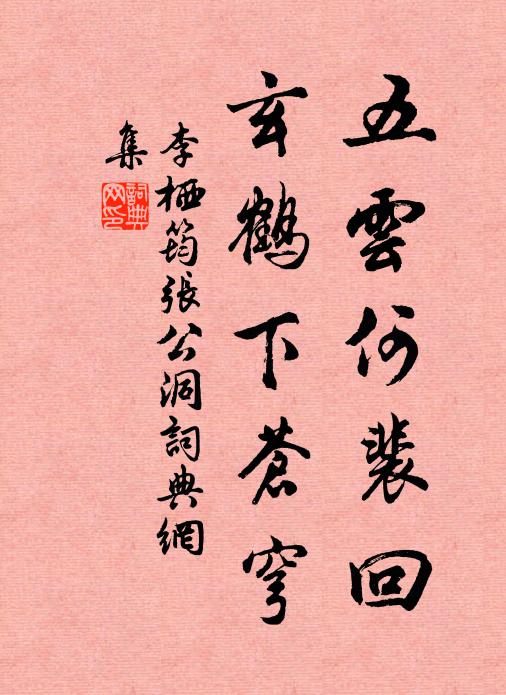 五雲何裴回
玄鶴下蒼穹
李栖筠張公洞詞典網
集
詞典
网印